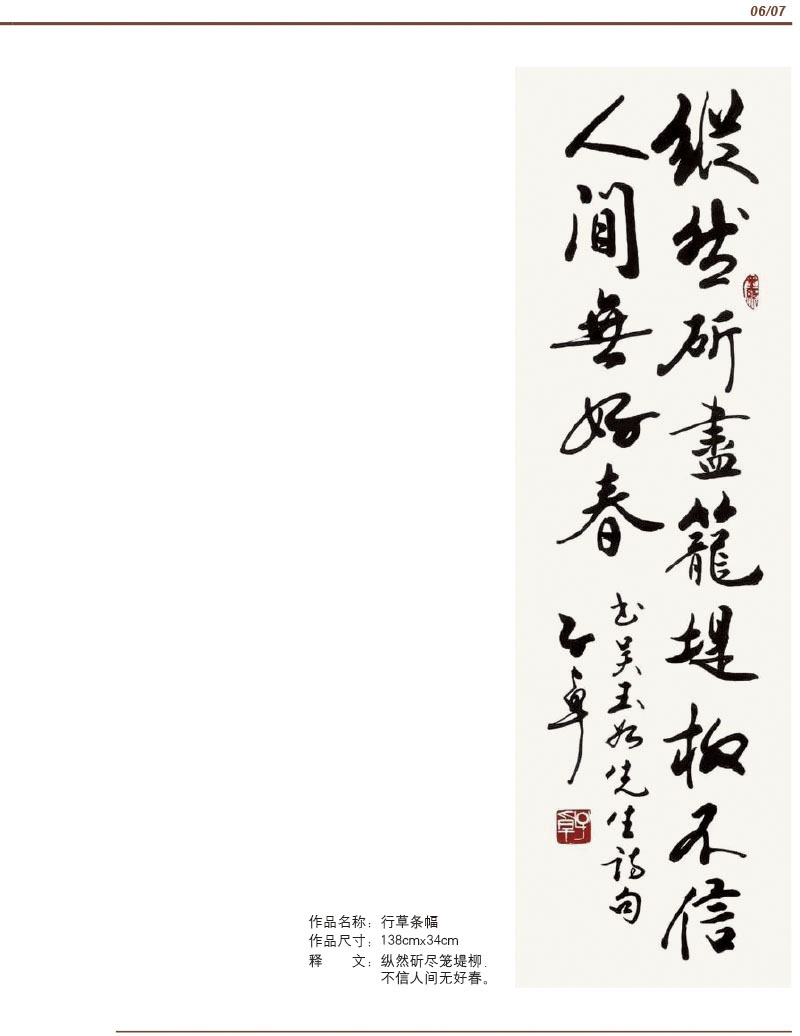 06/07
縱然斫盡籠堤柳不信
人間無好春
书吴玉如先生詩句
子卓
作品名称：行草条幅
作品尺寸：138cmx34cm
释　　文：纵然斫尽笼堤柳，
不信人间无好春。